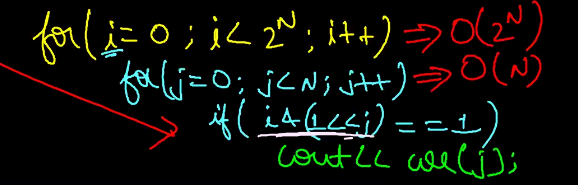 for(i=0 ; i<2^N ; i++) ⇒ O(2^N)
for(j=0; j<N; j++) ⇒ O(N)
if( i&(1<<j) == 1)
cout<< arr[j];